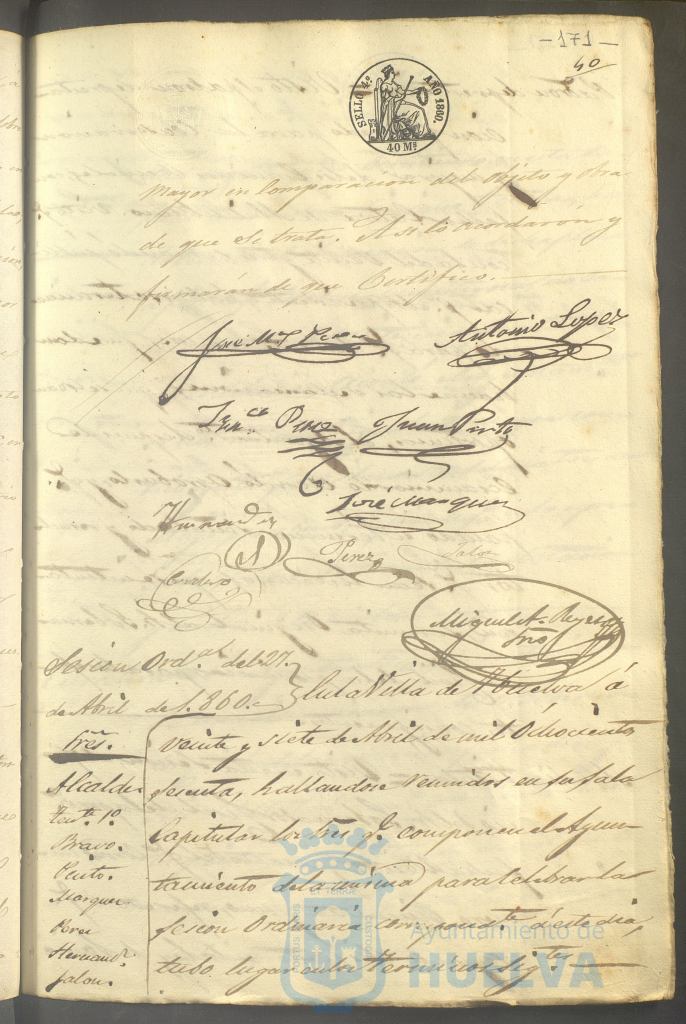 -171-
40
SELLO 4º AÑO 1860.
40 Ms
mayor en comparacion del objeto y obra
de que se trata. Asi lo acordarón y
firmarán de que Certifico.
José Mª Perez
Antonio Lopez
Franco Perez Juan Pinto
José Marquez
Hernandez
Perez Jalon
Cordero
Miguel A. Reyes
Srio
Sesion Ordª del 27
de Abril de 1.860.
En la Villa de Huelva á
Sres.
veinte y siete de Abril de mil Ochociento
Alcalde
sesenta, hallandose reunidos en su sala
Tente 1º
Capitular los Sres qe componen el Ayun-
Bravo.
Pinto.
tamiento de la misma para celebrar la
Marquez
sesion Ordinaria correspondte á este dia,
Perez
Hernandz
tubo lugar en los terminos sigtes
Jalon.
PORTUS MARIS ET TERRAE CUSTODIA
Ayuntamiento de
HUELVA